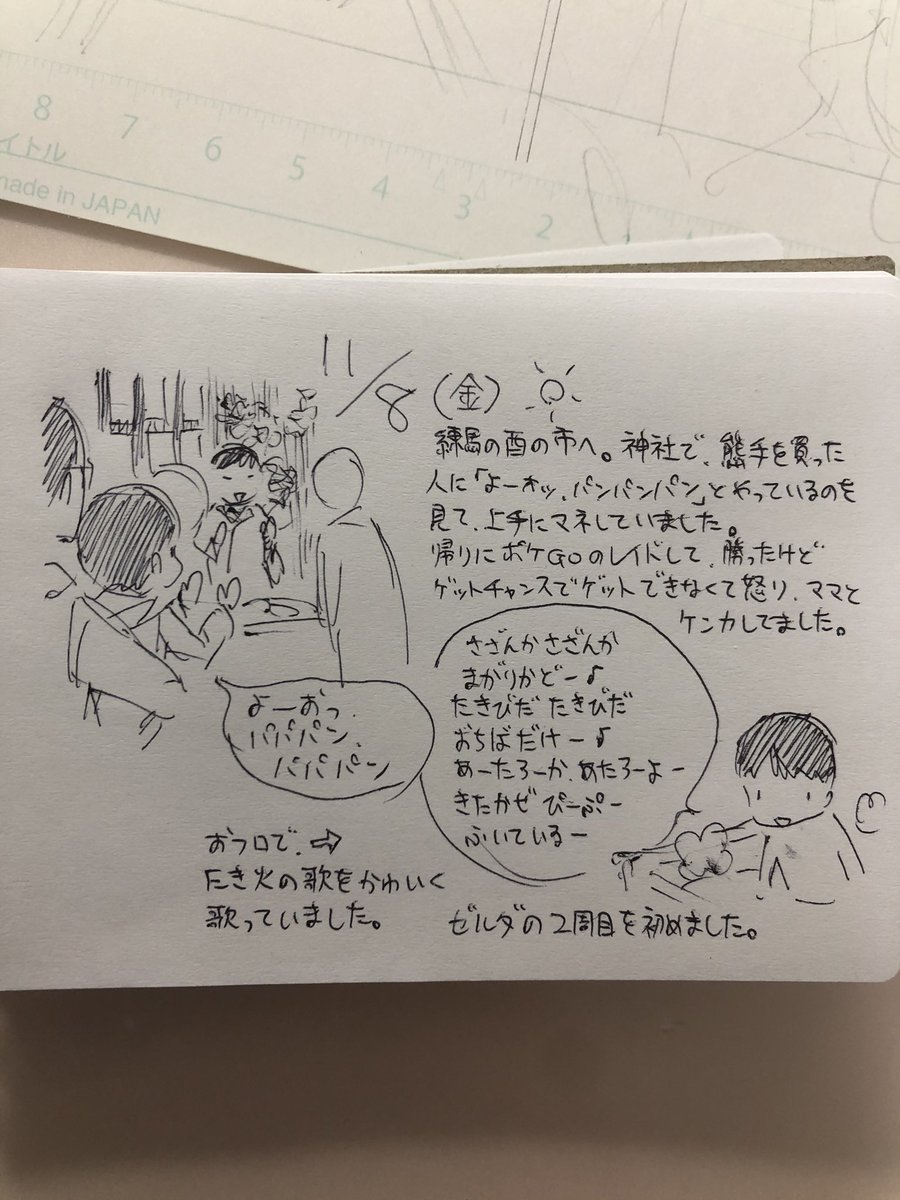 8 7 6 5 4 3 2
イトル
made in JAPAN
11/8(金)
練馬の酉の市へ。神社で、熊手を買った
人に「よーオッ、パンパンパン」とやっているのを
見て、上手にマネしていました。
帰りにポケGOのレイドして、勝ったけど
ゲットチャンスでゲットできなくて怒り、ママと
ケンカしてました。
よーおっ、
パパパン、
パパパン
さざんか さざんか
まがりかどー♪
たきびだ たきびだ
おちばだけー♪
あーたろーか、あたろーよー
きたかぜ ぴーぷー
ふいているー
おフロで、⇨
たき火の歌をかわいく
歌っていました。
ゼルダの2周目を初めました。